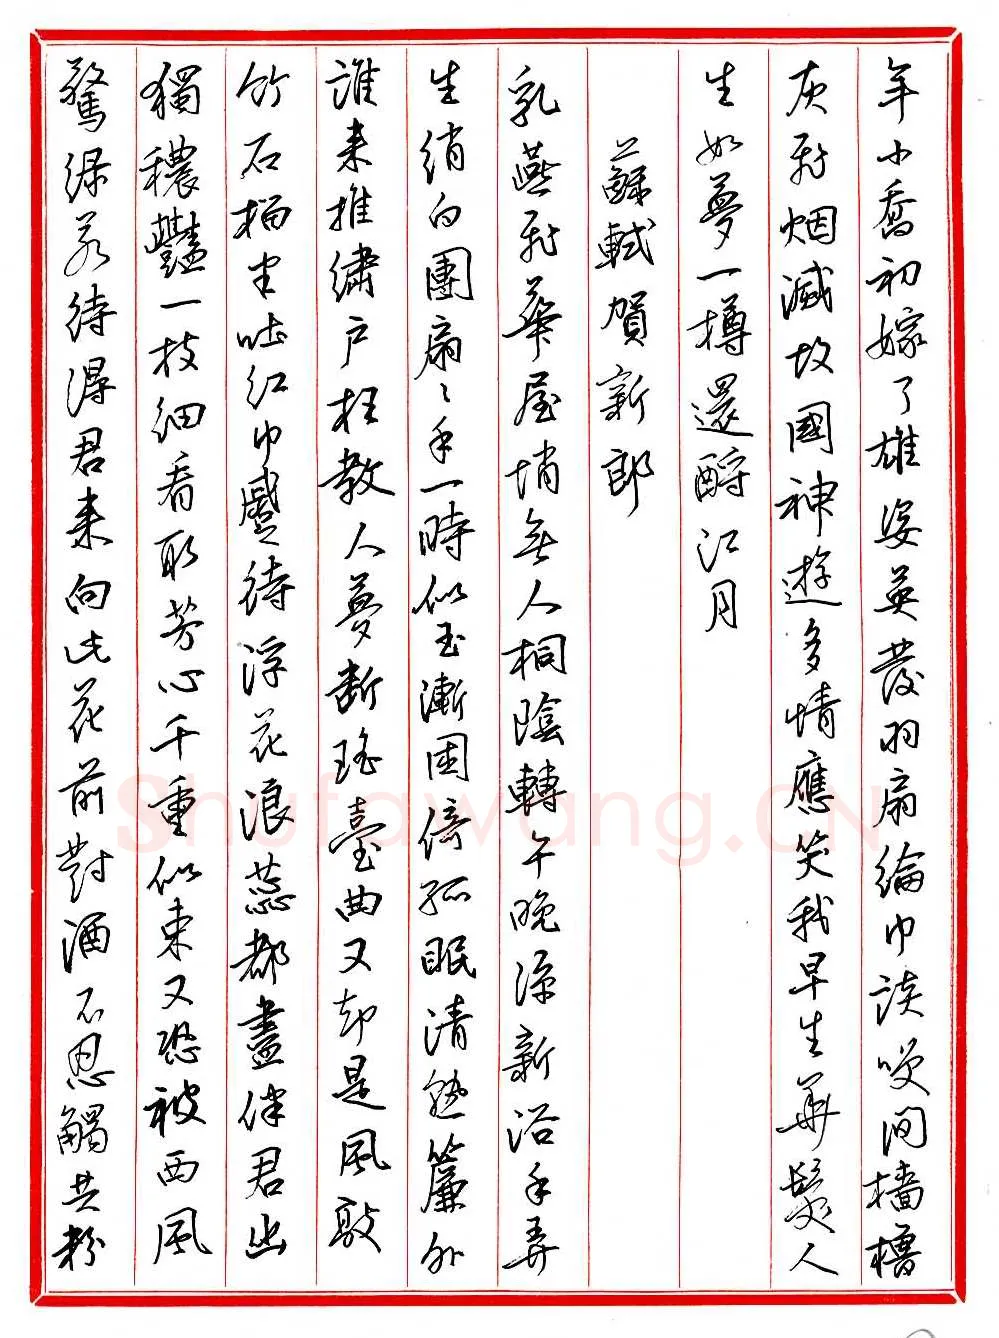 年小喬初嫁了雄姿英發羽扇綸巾談咲间檣櫓
灰飛烟滅故國神遊多情應笑我早生華髮人
生如夢一樽還酹江月
蘇軾賀新郎
乳燕飛華屋悄無人桐陰轉午晚涼新浴手弄
生綃白團扇〻手一時似玉漸困倚孤眠清熟簾外
誰來推繡户枉教人夢斷瑤臺曲又却是風敲
竹石榴半吐红巾蹙待浮花浪蕊都盡伴君幽
獨穠豔一枝细看取芳心千重似束又恐被西風
驚绿若待得君来向此花前對酒不忍觸共粉
Shufawang.CN